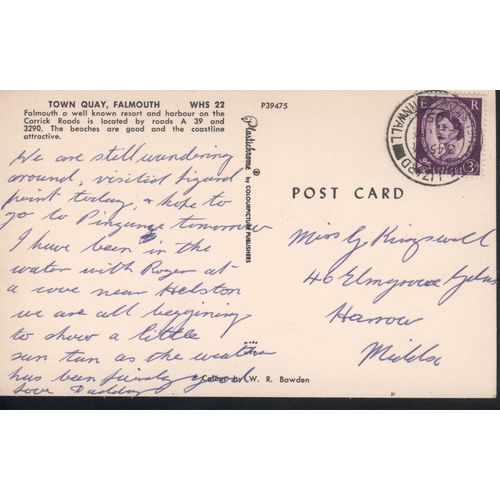 TOWN QUAY, FALMOUTH WHS 22
Falmouth a well known resort and harbour on the
Carrick Roads is located by roads A 39 and
3290. The beaches are good and the coastline
attractive.
P39475
We are still wandering
around, visited Lizard
point today, & hope to
go to Pinzance tomorrow
I have been in the
water with Roger at
a cove near Helston
we are all beginning
to show a little
sun tan as the weather
has been fairly good
love Daddy
Plastichrome ® by COLOURPICTURE PUBLISHERS
POST CARD
Miss G Kingswell
46 Elmgrove
Harrow
Middx
Colour by W. R. Bawden
E R
3D